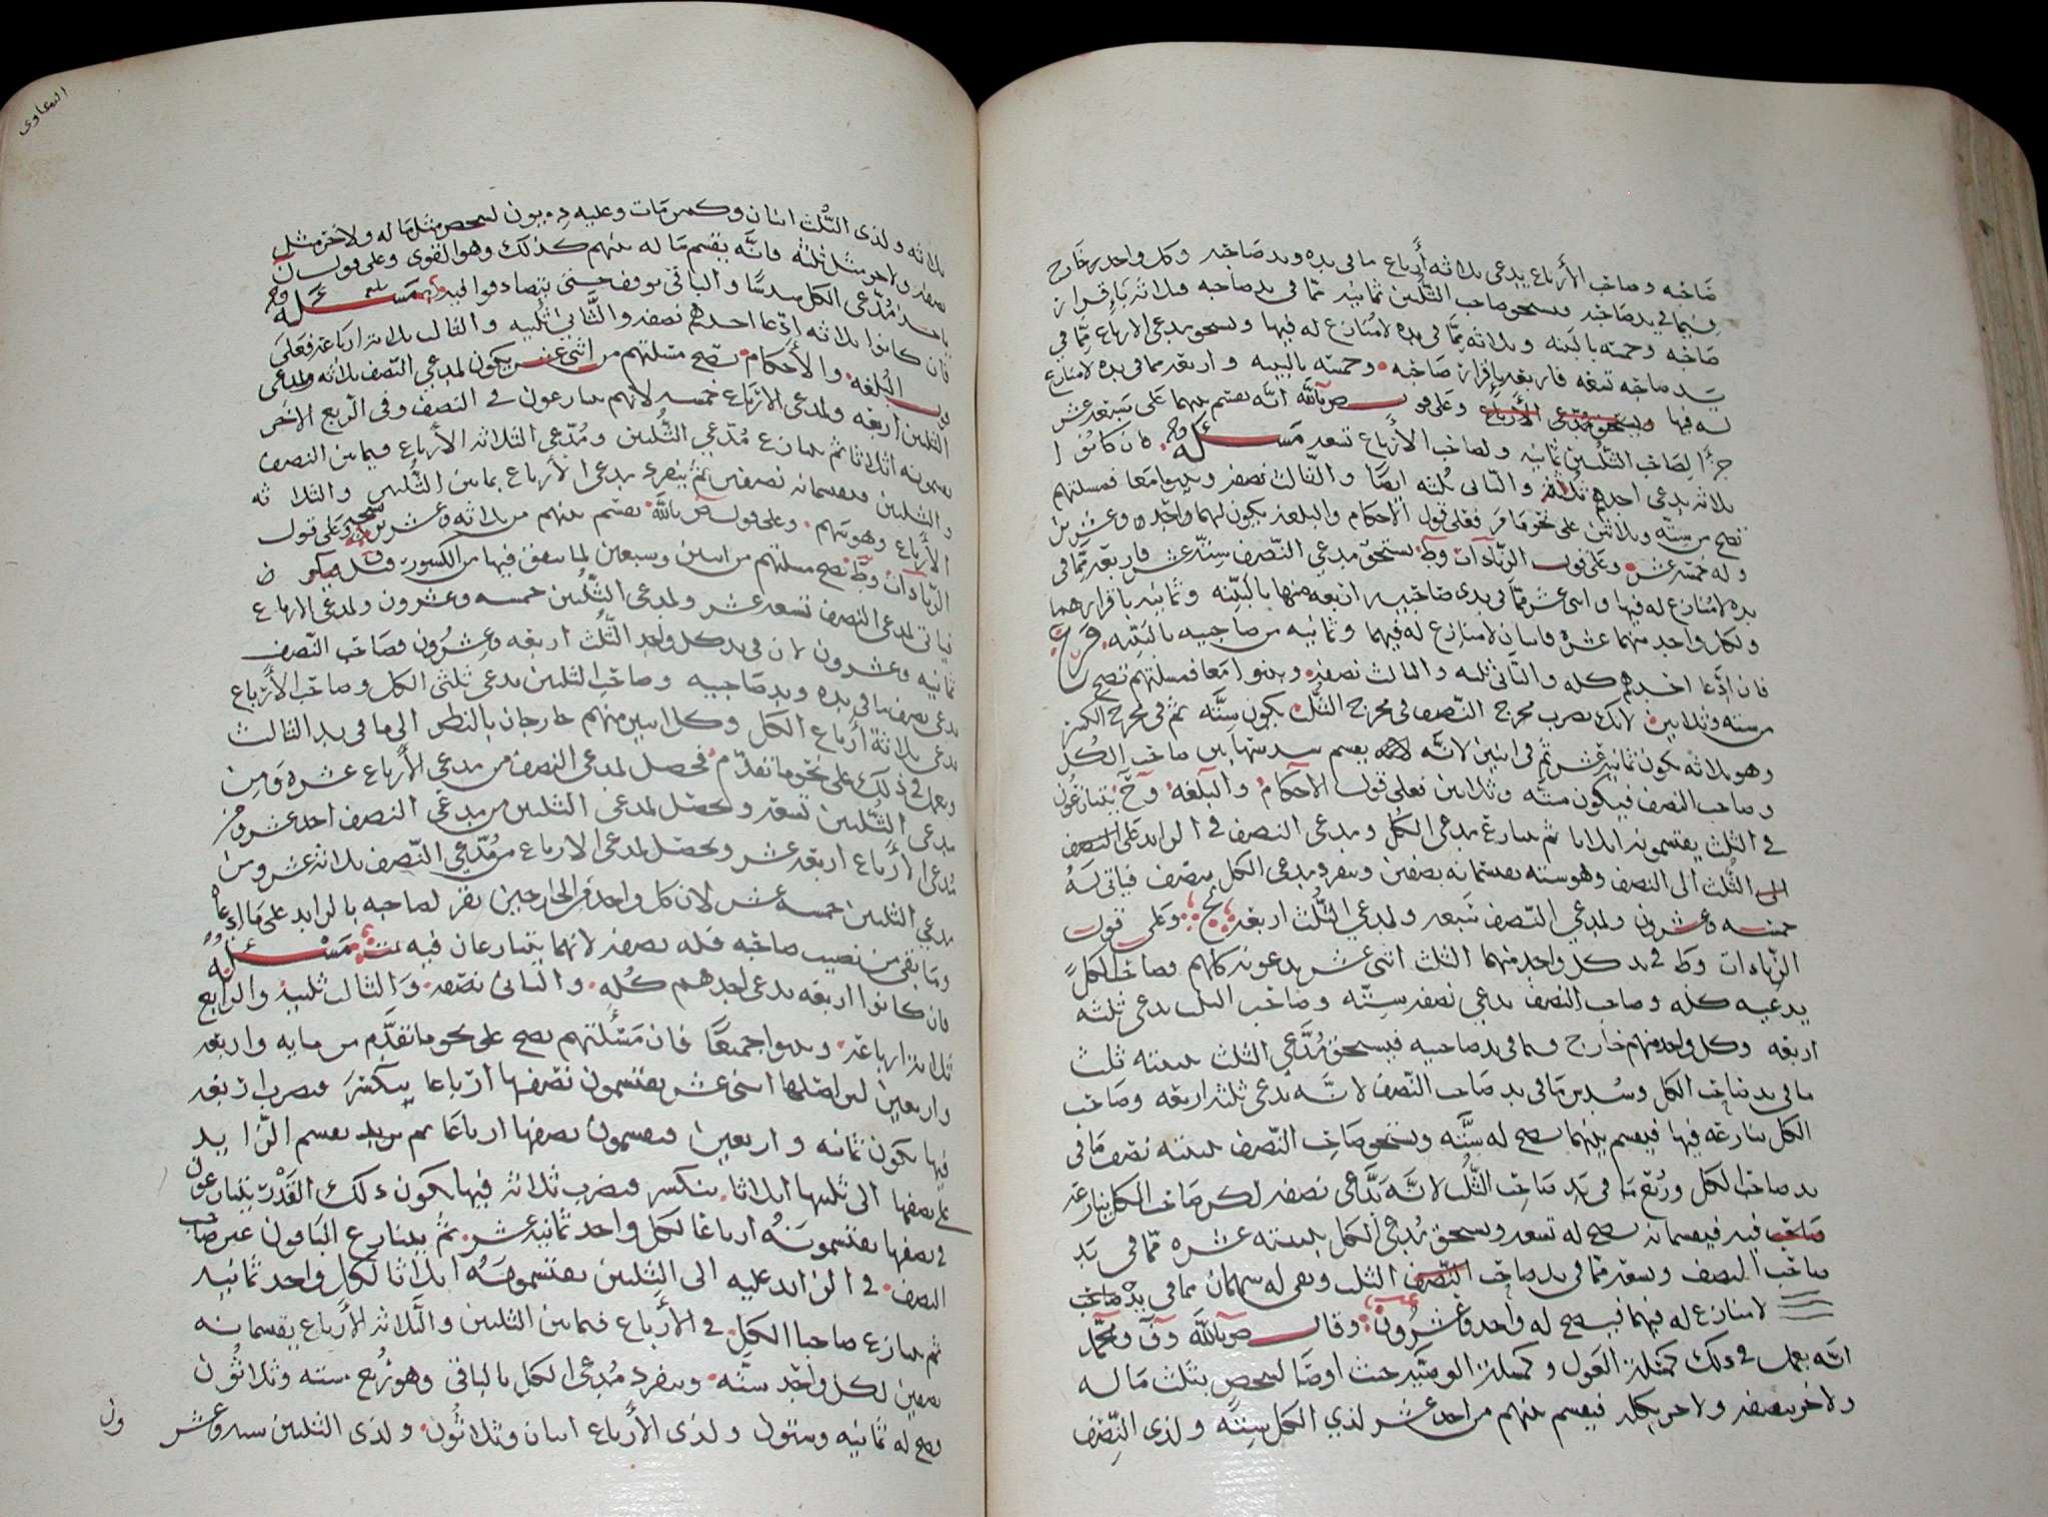 صاحبه وصاحب الأرباع يدعي ثلاثة أرباع ما في يده ويد صاحبه وكل واحد خارج
فيما في يد صاحبه ويستحق صاحب الثلثين ثمانية مما في يد صاحبه ثلاثة بإقرار
صاحبه وخمسة بالبينة وثلاثة مما في يده لا منازع له فيها ويستحق مدعي الارباع مما في
يد صاحبه تسعة فاربعة بإقرار صاحبه وخمسة بالبينة واربعة مما في يده لا منازع
له فيها وعلى قول ص بالله انه يقسم بينهما على سبعة عشر
جزأ لصاحب الثلثين ثمانية ولصاحب الأرباع تسعة مسئلة فان كانوا
ثلاثة يدعي احدهم ثلثه والثاني ثلثه ايضا والثالث نصفه وبينوا معا فمسئلتهم
تصح من ستة وثلاثين على نحو ما مر فعلى قول الأحكام والبلغة يكون لهما واحد وعشرين
وله خمسة عشر وعلى قول الزيادات وط يستحق مدعي النصف ستة عشر فاربعة مما في
يده لا منازع له فيها واثني عشر مما في يدي صاحبيه اربعة منها بالبينة وثمانية بإقرارهما
ولكل واحد منهما عشرة فاثنان لا منازع له فيهما وثمانية من صاحبيه بالبينة فرع
فان ادعا احدهم كله والثاني ثلثه والثالث نصفه وبينوا معا فمسئلتهم تصح
من ستة وثلاثين لانك تضرب مخرج النصف في مخرج الثلث يكون ستة ثم في مخرج الكسر
وهو ثلاثة يكون ثمانية عشر ثم في اثنين لانه يقسم سدسها بين صاحب الكل
وصاحب النصف فيكون ستة وثلاثين فعلى قول الأحكام والبلغة وح يتنازعون
في الثلث يقتسمونه اثلاثا ثم يتنازع مدعي الكل ومدعي النصف في الزايد على
الثلث الى النصف وهو ستة يقتسمانه نصفين وينفرد مدعي الكل بنصف فياتي له
خمسة وعشرون ولمدعي النصف سبعة ولمدعي الثلث اربعة وعلى قول
الزيادات وط في يد كل واحد منهما الثلث اثني عشر يدعونه كلهم وصاحب الكل
يدعيه كله وصاحب النصف يدعي نصفه ستة وصاحب الثلث يدعي ثلثه
اربعة وكل واحد منهم خارج فيما في يد صاحبيه فيستحق مدعي الثلث ببينته ثلث
ما في يد صاحب الكل وسدس ما في يد صاحب النصف لانه يدعي ثلثه اربعة وصاحب
الكل ينازعه فيها فيقسم بينهما يصح له ستة ويستحق صاحب النصف ببينته نصف ما في
يد صاحب الكل وربع ما في يد صاحب الثلث لانه يدعي نصفه لكن صاحب الكل ينازعه
فيه فيقسمانه يصح له تسعة ويستحق مدعي الكل ببينته عشره مما في يد
صاحب النصف وتسعة مما في يد صاحب الثلث وبقي له سهمان مما في يده
لا منازع له فيهما فيصح له واحد وعشرون وقال ص بالله وق ومحمد
انه يعمل في ذلك كمسئلة العول وكمسئلة الوصية حيث اوصا لشخص بثلث ماله
ولاخر بنصفه ولاخر بكله فيقسم بينهم من احد عشر لذي الكل ستة ولذي النصف
المعاوي
ثلاثة ولذي الثلث اثنان وكمن مات وعليه ديون لشخص مثل ماله ولاخر مثل
نصفه ولاخر مثل ثلثه فانه يقسم ماله بينهم كذلك وهو القوي وعلى قول ن
ياخذ مدعي الكل سدسا والباقي يوقف حتى يتصادقوا فيه مسئلة
فان كانوا ثلاثة ادعا احدهم نصفه والثاني ثلثيه والثالث ثلاثة ارباعه فعلى
قول البلغة والأحكام تصح مسئلتهم من اثني عشر يكون لمدعي النصف ثلاثة ولمدعي
الثلثين أربعة ولمدعي الأرباع خمسة لانهم يتنازعون في النصف وفي الربع الآخر
يقسمونه اثلاثا ثم يتنازع مدعي الثلثين ومدعي الثلاثة الأرباع فيما بين النصف
والثلثين فيقسمانه نصفين ثم ينفرد مدعي الأرباع بما بين الثلثين والثلاثة
الأرباع وهو سهم وعلى قول ص بالله يقسم بينهم من ثلاثة وعشرين وعلى قول
الزيادات وط تصح مسئلتهم من اثنين وسبعين لما يتفق فيها من الكسور
فياتي لمدعي النصف تسعة عشر ولمدعي الثلثين خمسة وعشرون ولمدعي الارباع
ثمانية وعشرون لان في يد كل واحد الثلث اربعة وعشرون فصاحب النصف
يدعي نصف ما في يده ويد صاحبيه وصاحب الثلثين يدعي ثلثي الكل وصاحب الأرباع
يدعي ثلاثة أرباع الكل وكل اثنين منهم خارجان بالنظر الى ما في يد الثالث
ويعمل في ذلك على نحو ما تقدم فحصل لمدعي النصف من مدعي الأرباع عشرة ومن
مدعي الثلثين تسعة وتحصل لمدعي الثلثين من مدعي النصف احد عشر ومن
مدعي الأرباع اربعة عشر وتحصل لمدعي الارباع من مدعي النصف ثلاثة عشر ومن
مدعي الثلثين خمسة عشر لان كل واحد من الخارجين يقر لصاحبه بالزايد على ما ادعاه
وما بقي من نصيب صاحبه فله نصفه لانهما يتنازعان فيه مسئلة
فان كانوا اربعة يدعي احدهم كله والثاني نصفه والثالث ثلثيه والرابع
ثلاثة ارباعه وبينوا جميعا فان مسئلتهم تصح على نحو ما تقدم من ماية واربعة
واربعين لان اصلها اثني عشر يقتسمون نصفها ارباعا ينكسر فيضرب اربعة
فيها يكون ثمانية واربعين فيقسمون نصفها ارباعا ثم يقسم الزايد
على نصفها الى ثلثيها اثلاثا ينكسر فيضرب ثلاثة فيها يكون ذلك القدر يتنازعون
في نصفها يقتسمونه ارباعا لكل واحد ثمانية عشر ثم يتنازع الباقون غير صاحب
النصف في الزايد عليه الى الثلثين يقتسمونه اثلاثا لكل واحد ثمانية
ثم يتنازع صاحبا الكل في الأرباع فيما بين الثلثين والثلاثة الأرباع يقسمانه
نصفين لكل واحد ستة وينفرد مدعي الكل بالباقي وهو ربع ستة وثلاثون
يصح له ثمانية وستون ولذي الأرباع اثنان وثلاثون ولذي الثلثين ستة وعشر
ون